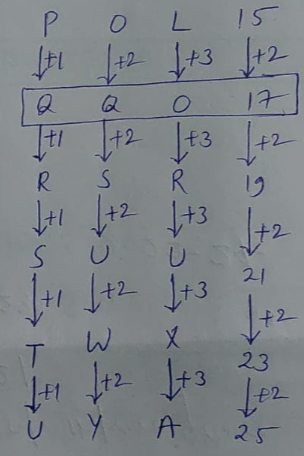 P O L 15
↓+1 ↓+2 ↓+3 ↓+2
Q Q O 17
↓+1 ↓+2 ↓+3 ↓+2
R S R 19
↓+1 ↓+2 ↓+3 ↓+2
S U U 21
↓+1 ↓+2 ↓+3 ↓+2
T W X 23
↓+1 ↓+2 ↓+3 ↓+2
U Y A 25